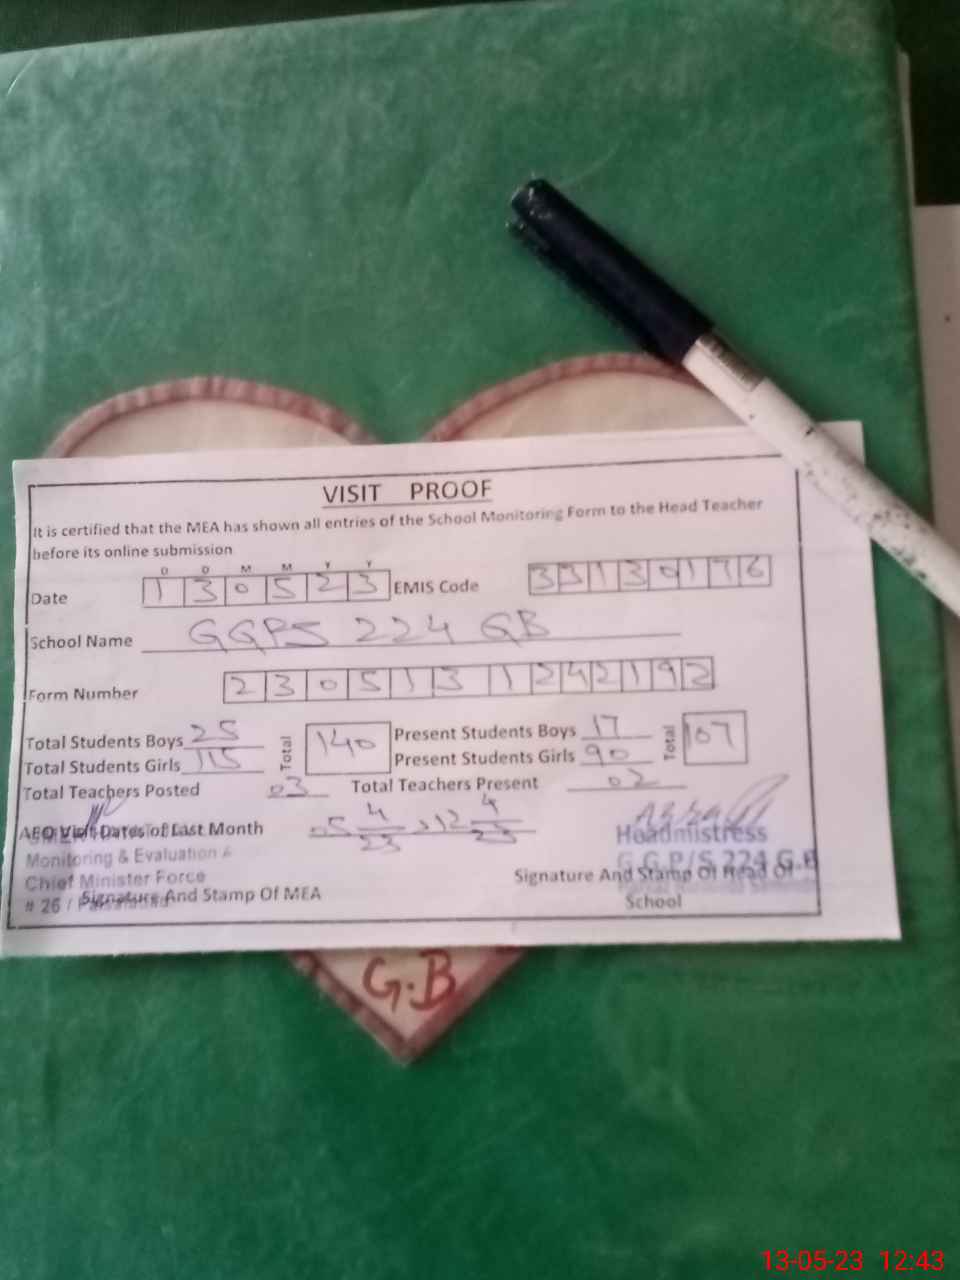 VISIT PROOF
It is certified that the MEA has shown all entries of the School Monitoring Form to the Head Teacher
before its online submission
D D M M Y Y
Date 1 3 0 5 2 3 EMIS Code 3 3 1 3 0 1 7 6
School Name GGPS 224 GB
Form Number 2 3 0 5 1 3 1 2 4 2 1 9 2
Total Students Boys 25 Total 140 Present Students Boys 17 Total 107
Total Students Girls 115 Present Students Girls 90
Total Teachers Posted 03 Total Teachers Present 02
AEO Visit Dates of Last Month 05 4/23 , 12 4/23
Headmistress
Monitoring & Evaluation A
G.G.P/S 224 G.B
Chief Minister Force
# 26 / Faisalabad
Signature And Stamp Of MEA
Signature And Stamp Of Head Of
School
G.B
13-05-23 12:43